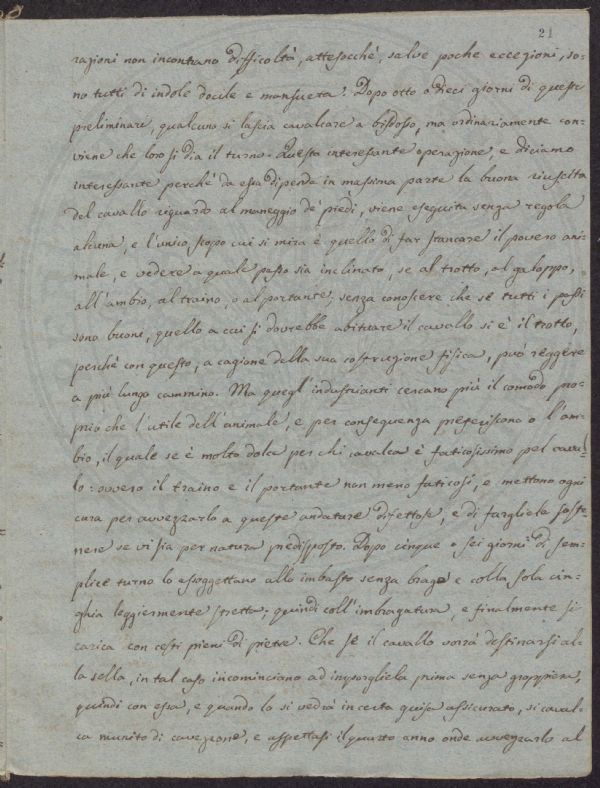 21
razioni non incontrano difficoltà, attesocchè, salve poche eccezioni, so-
no tutti di indole docile e mansueta. Dopo otto o dieci giorni di questi
preliminari, qualcuno si lascia cavalcare a bisdosso, ma ordinariamente con-
viene che loro si dia il turno. Questa interessante operazione, e diciamo
interessante perchè da essa dipende in massima parte la buona riuscita
del cavallo riguardo al maneggio de' piedi, viene eseguita senza regola
alcuna, e l'unico scopo cui si mira è quello di far stancare il povero ani-
male, e vedere a quale passo sia inclinato, se al trotto, al galoppo,
all'ambio, al traino, o al portante, senza conoscere che se tutti i passi
sono buoni, quello a cui si dovrebbe abituare il cavallo si è il trotto,
perchè con questo, a cagione della sua costruzione fisica, può reggere
a più lungo cammino. Ma quegl'industrianti cercano più il comodo pro-
prio che l'utile dell'animale, e per conseguenza preferiscono o l'am-
bio, il quale se è molto dolce per chi cavalca è faticosissimo pel caval-
lo: ovvero il traino e il portante non meno faticosi, e mettono ogni
cura per avvezzarlo a queste andature difettose, e di fargliela soste-
nere se vi sia per natura predisposto. Dopo cinque o sei giorni di sem-
plice turno lo assoggettano allo imbasto senza brage e colla sola cin-
ghia leggiermente stretta; quindi coll'imbragatura, e finalmente si
carica con cesti pieni di pietre. Che se il cavallo vorrà destinarsi al-
la sella, in tal caso incominciano ad imporgliela prima senza groppiera,
quindi con essa, e quando lo si vedrà in certa guisa assicurato, si caval-
ca munito di cavezzone, e aspettasi il quarto anno onde avvezzarlo al